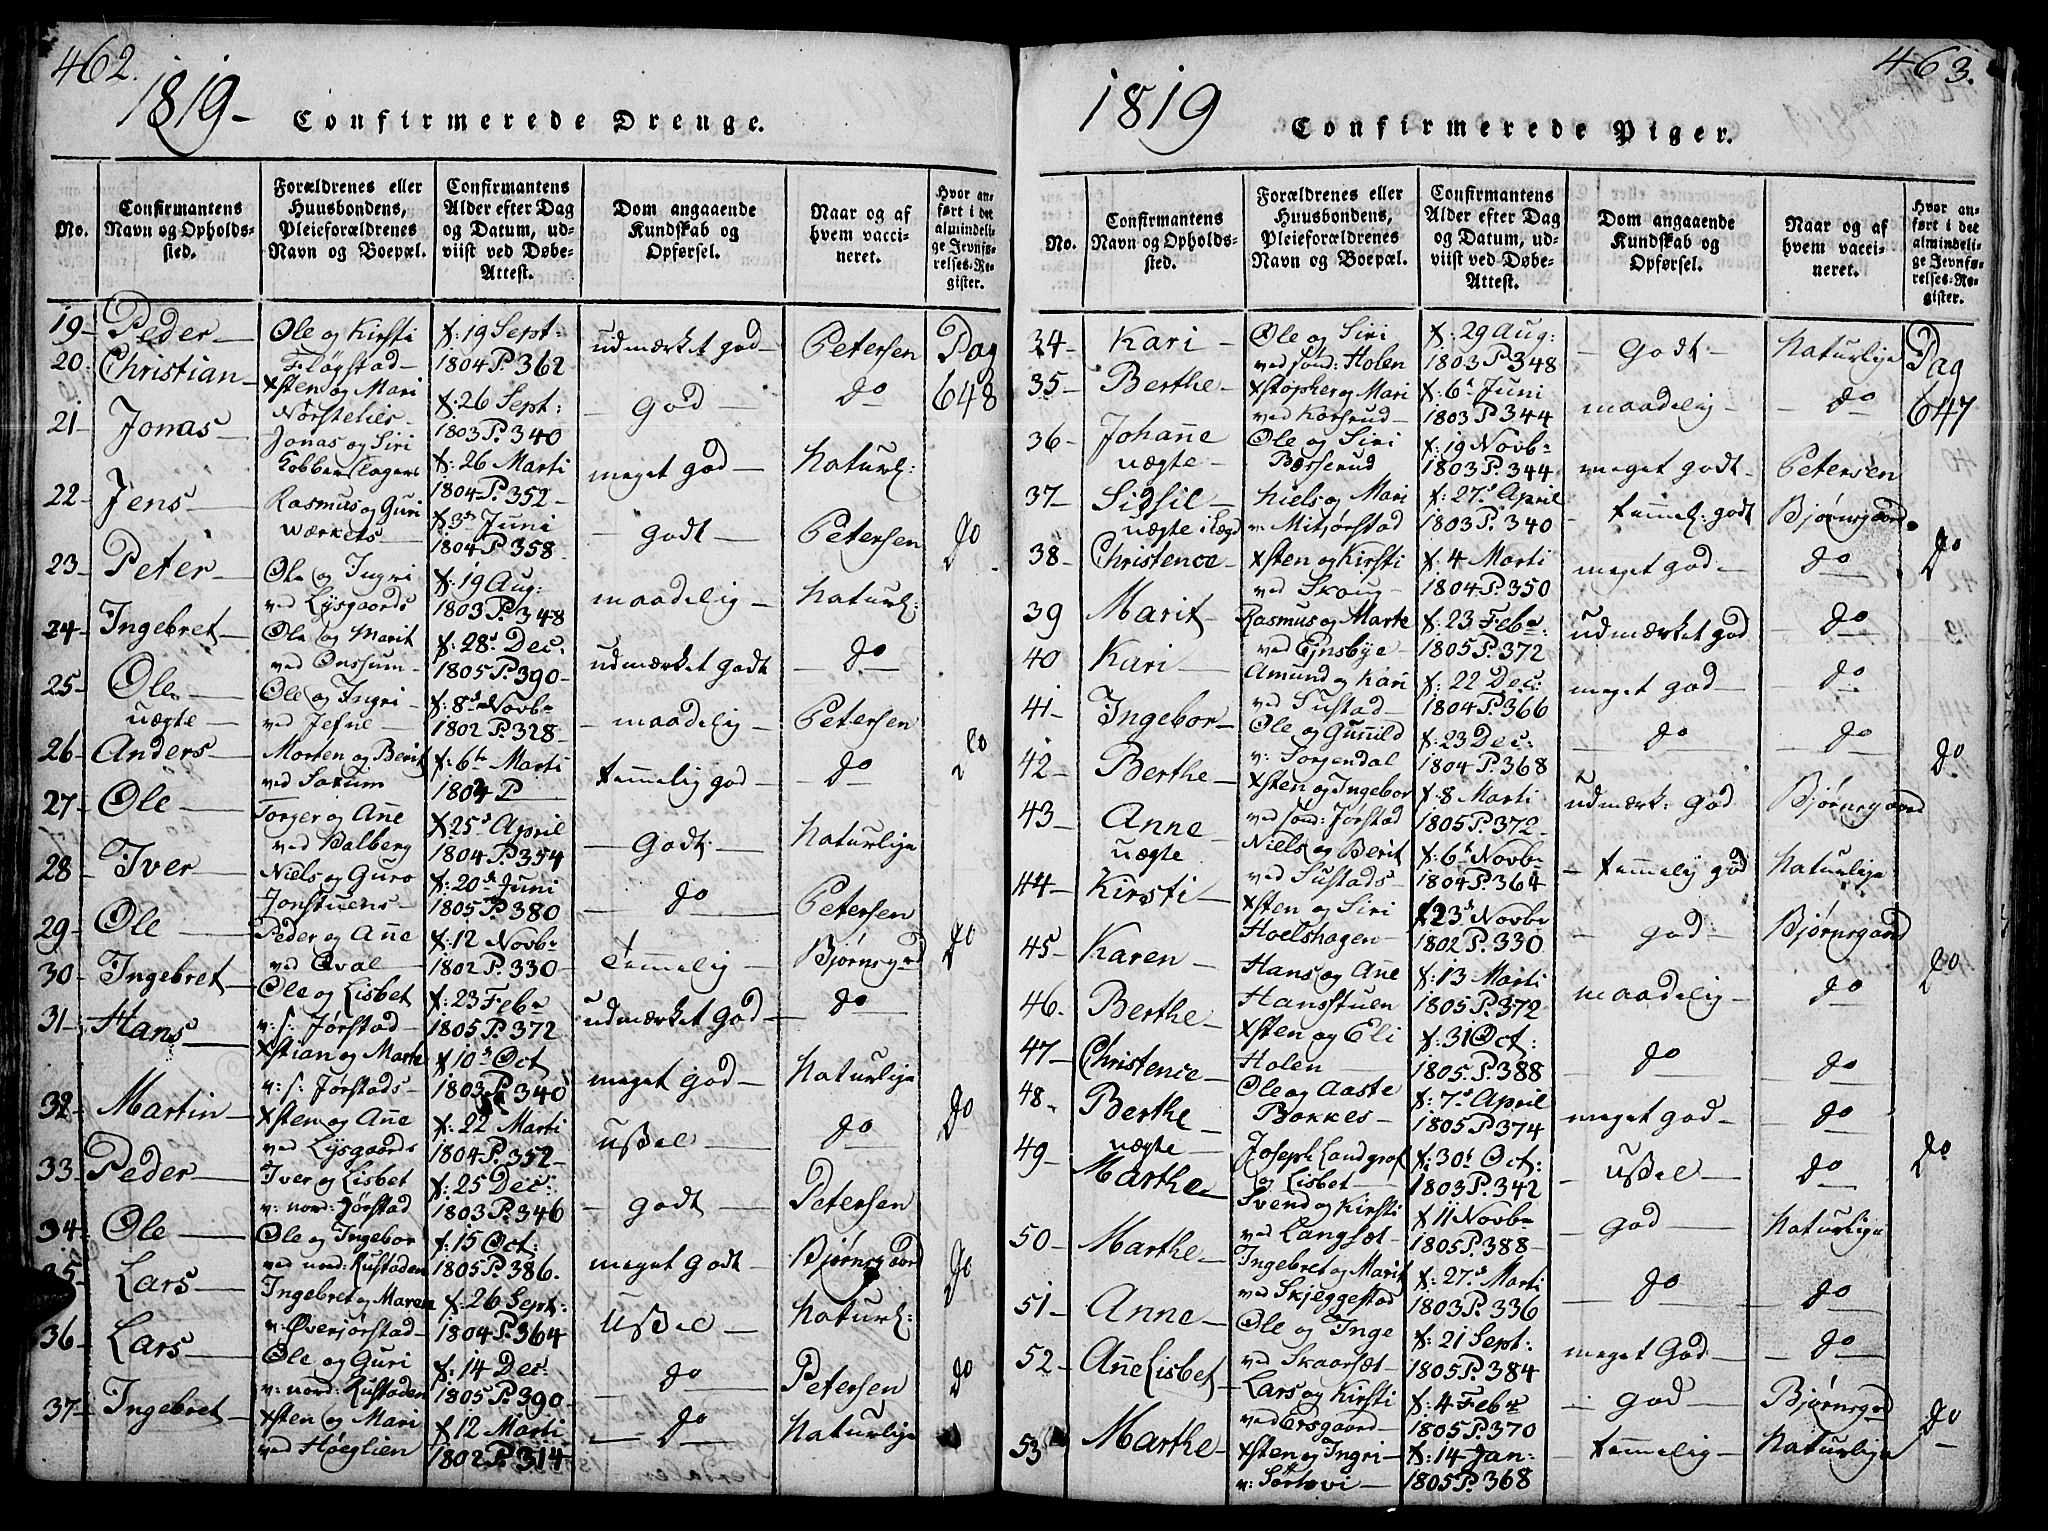 462.
1819-
Confirmerede Drenge.
No.
Confirmantens Navn og Opholds-sted.
Forældrenes eller Huusbondens, Pleieforældrenes Navn og Boepæl.
Confirmantens Alder efter Dag og Datum, ud-viist ved Døbe-Attest.
Dom angaaende Kundskab og Opførsel.
Naar og af hvem vacci-neret.
Hvor an-ført i det almindeli-ge Jevnfø-relses-Re-gister.
19- Peder- Ole og Kirsti Fløgstad- f: 19 Sept: 1804 P. 362 udmærket god- Petersen Pag 648
20- Christian- Xsten og Mari f: 26 Sept: 1803 P. 340 - god - do
21- Jonas- Jonas og Siri f: 26 Marti 1804 P. 352- meget god- Naturl:
22- Jens- Rasmus og Guri Wærkets- f: 3 Juni 1804 P. 358- - godt - Petersen do
23- Peter- Ole og Ingri ved Lysgaards f: 19 Aug: 1803 P. 348 maadelig- Naturl:
24- Ingebret- Ole og Marit ved Onssum- f: 28 Dec: 1805 P. 390- udmærket godt - do
25- Ole uægte- Ole og Ingri- ved Jefne- f: 8 Novb 1802 P. 328- - maadelig- Petersen
26- Anders- Morten og Berit ved f: 6 Marti P temmelig god- do do
27- Ole- Torger og Anne ved Balberg f: 25 April 1804 P. 354 - Godt - Naturlige
28- Iver- Niels og Guro Jonstuens- f: 20 Juni 1805 P. 380 - do - Petersen
29- Ole- Peder og Anne ved Qval- f: 12 Novb 1802 P. 330- temmelig- Bjørnsgrd do
30- Ingebret- Ole og Lisbet v: s: Jørstad- f: 23 Feb 1805 P. 372 udmærket god- do
31- Hans- Xstian og Marte v: s: Jørstads- f: 10 Oct 1803 P. 340 meget god- Naturlige
32- Martin- Xsten og Anne ved Lysgaards f: 22 Marti 1804 P. 352- ussel - do do
33- Peder- Iver og Lisbet v: nord: Jørstad f: 25 Dec: 1803 P. 346 - godt - Petersen
34- Ole- Ole og Ingebor ved nord: Kustaden f: 15 Oct: 1805 P. 386. meget godt- Bjørnsgaard do
35- Lars- Ingebret og Maren v: Øverjørstad- f: 26 Sept: 1804 P. 364 Ussel - Naturl:
36- Lars- Ole og Guri v: nord: Kustaden f: 14 Dec 1805 P. 390- - do - Petersen do
37- Ingebret- Xsten og Mari ved Høeglien f: 12 Marti 1802 P. 314- - do - Naturlige
463.
1819
Confirmerede Piger.
No.
Confirmantens Navn og Opholds-sted.
Forældrenes eller Huusbondens, Pleieforældrenes Navn og Boepæl.
Confirmantens Alder efter Dag og Datum, ud-viist ved Døbe-Attest.
Dom angaaende Kundskab og Opførsel.
Naar og af hvem vacci-neret.
Hvor an-ført i det almindeli-ge Jevnfø-relses-Re-gister.
34- Kari- Ole og Siri ved sønd: Holen f: 29 Aug: 1803 P. 348 - Godt - Naturlige Pag 647
35- Berthe- Xstopher og Mari ved Korsrud- f: 6 Juni 1803 P. 344 maadelig- do
36- Johanne uægte- Ole og Siri Børserud f: 19 Novb 1803 P. 344- meget godt- Petersen
37- Sidsil- uægte Niels og Mari v: Mitjørstad f: 27 April 1803 P. 340 - temmel: godt Bjørnsgaard
38- Christence- Xsten og Kirsti ved Skoug- f: 4 Marti 1804 P. 350 meget god- do do
39 Marit- Rasmus og Marte ved Ejnsbye- f: 23 Feb: 1805 P. 372 udmærket god - do
40 Kari- Amund og Kari ved Sustad- f: 22 Dec: 1804 P. 366 meget god- do
41- Ingebor- Ole og Gunnild v: Sorgendal f: 23 Dec: 1804 P. 368 - do - do do
42- Berthe- Xsten og Ingebor ved sønd: Jørstad f: 8 Marti 1805 P. 372- udmærk: God Bjørnsgaard
43- Anne- uægte Niels og Berit ved Sustads- f: 6 Novb 1804 P. 364- - temmelig god Naturlige
44- Kirsti- Xsten og Siri Hoelshagen- f: 23 Novb 1802 P. 330 - god - Bjørnsgaard
45- Karen- Hans og Anne Hansstuen f: 13 Marti 1805 P. 372 maadelig- do do
46- Berthe- Xsten og Eli Holen f: 31 Oct: 1805. P. 388 - do - do
47- Christence- Ole og Aaste Bakkes- f: 7 April 1805 P. 374 meget god- do
48- Berthe- uægte- Joseph Landgraf og Lisbet- f: 30 Oct: 1803 P. 342 - ussel - do do
49- Marthe- Svend og Kirsti ved Langsæt- f: 11 Novb 1805 P. 388- - god - Naturlige
50- Marthe- Ingebret og Marit ved Skjeggestad f: 27 Marti 1803 P. 336 - do - do
51- Anne- Ole og Inge ved Skaarsæt- f: 21 Sept: 1805 P. 384 meget God- do
52- Anne Lisbet- Lars og Kirsti ved Ersgaard- f: 4 Feb 1805 P. 370 - god - Bjørnsgrd do
53 Marthe- Xsten og Ingri- v: f: 14 Jan: 1805 P. 368 - temmelig- Naturlige